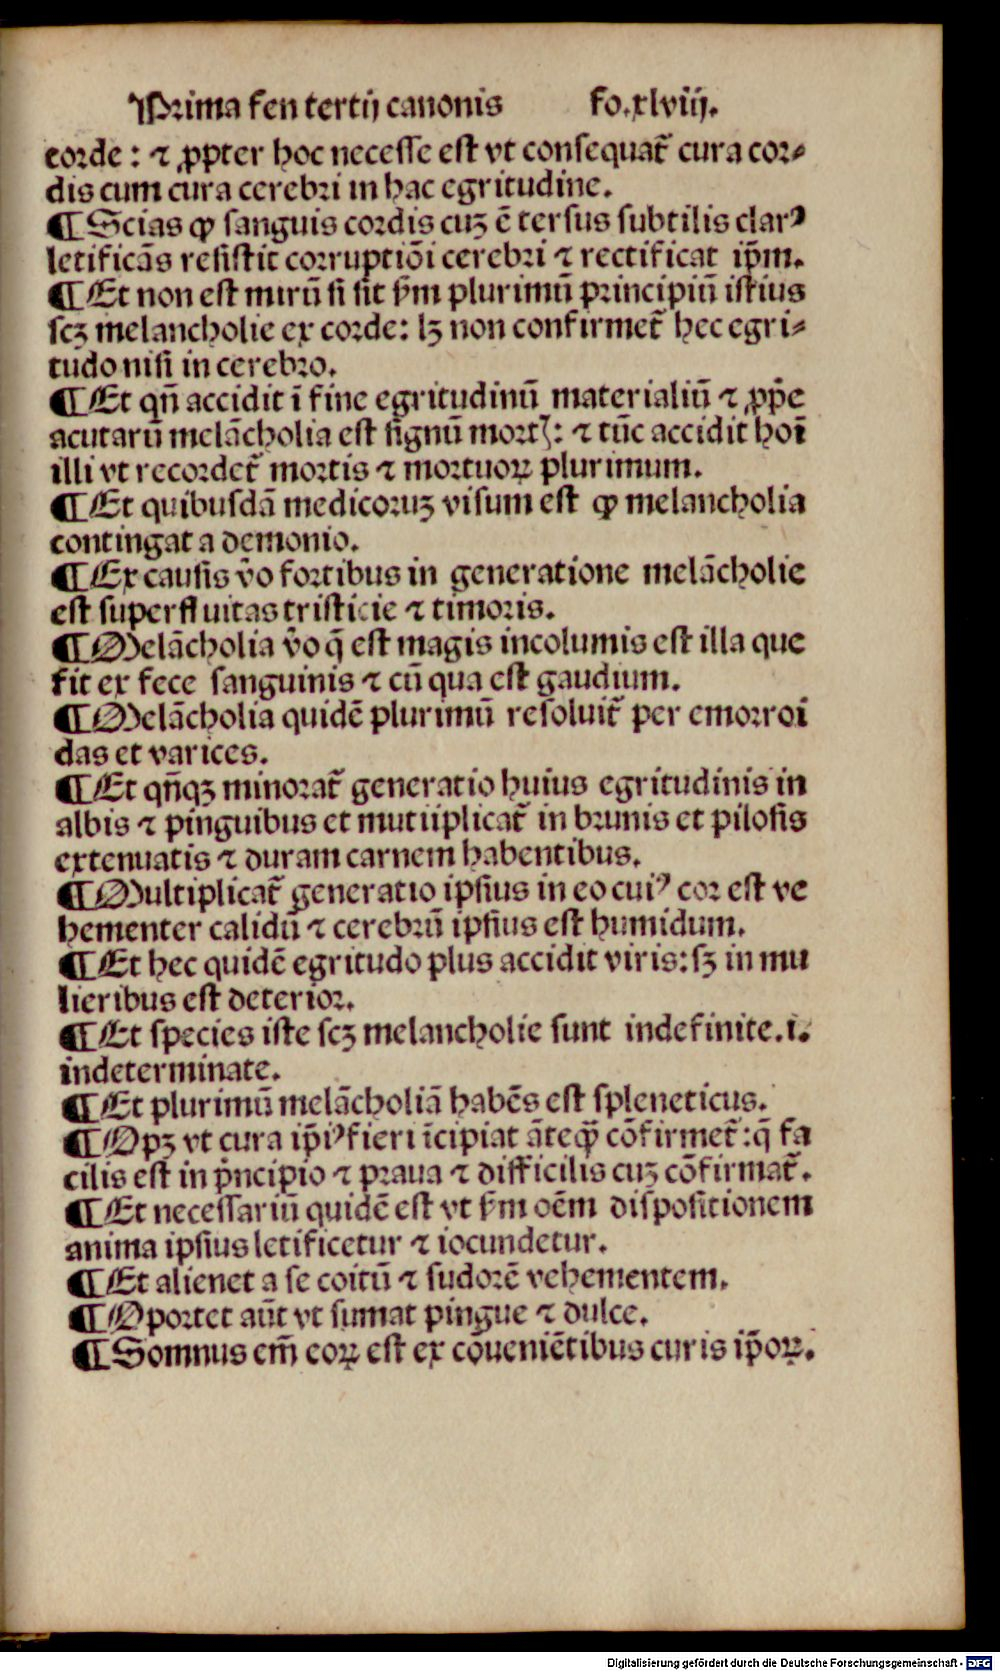 Prima fen tertij canonis fo.xlviij.
corde: ⁊ ꝓpter hoc necesse est vt consequat̃ cura cor⸗
dis cum cura cerebri in hac egritudine.
¶ Scias ꝙ sanguis cordis cuꝫ ē tersus subtilis clarꝰ
letificãs resistit corruptiõi cerebri ⁊ rectificat ip̃m.
¶ Et non est mirũ si sit ẜm plurimũ principiũ istius
scꝫ melancholie ex corde: lꝫ non confirmet̃ hec egri⸗
tudo nisi in cerebro.
¶ Et qñ accidit ĩ fine egritudinũ materialiũ ⁊ ꝓp̃e
acutarũ melãcholia est signũ mortꝭ: ⁊ tũc accidit hoĩ
illi vt recordet̃ mortis ⁊ mortuoꝝ plurimum.
¶ Et quibusdã medicoruꝫ visum est ꝙ melancholia
contingat a demonio.
¶ Ex causis v̾o fortibus in generatione melãcholie
est superfluitas tristicie ⁊ timoris.
¶ Melãcholia v̾o q̃ est magis incolumis est illa que
fit ex fece sanguinis ⁊ cũ qua est gaudium.
¶ Melãcholia quidẽ plurimũ resoluit̃ per emorroi
das et varices.
¶ Et qñqꝫ minorat̃ generatio huius egritudinis in
albis ⁊ pinguibus et mutiiplicat̃ in brunis et pilosis
extenuatis ⁊ duram carnem habentibus.
¶ Multiplicat̃ generatio ipsius in eo cuiꝰ cor est ve
hementer calidũ ⁊ cerebrũ ipsius est humidum.
¶ Et hec quidẽ egritudo plus accidit viris: sꝫ in mu
lieribus est deterior.
¶ Et species iste scꝫ melancholie sunt indefinite.i.
indeterminate.
¶ Et plurimũ melãcholiã habẽs est spleneticus.
¶ Opꝫ vt cura ip̃iꝰ fieri ĩcipiat ãteꝙ̃ cõfirmet̃: q̃ fa
cilis est in p̃ncipio ⁊ praua ⁊ difficilis cuꝫ cõfirmat̃.
¶ Et necessariũ quidẽ est vt ẜm oẽm dispositionem
anima ipsius letificetur ⁊ iocundetur.
¶ Et alienet a se coitũ ⁊ sudorẽ vehementem.
¶ Oportet aũt vt sumat pingue ⁊ dulce.
¶ Somnus em̃ eoꝝ est ex cõueniẽtibus curis ip̃oꝝ.
Digitalisierung gefördert durch die Deutsche Forschungsgemeinschaft - DFG